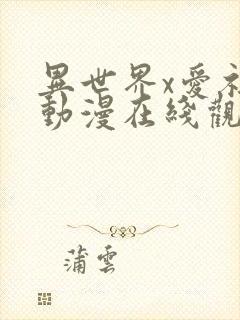 異世界x愛
動漫在綫觀
蒲雲